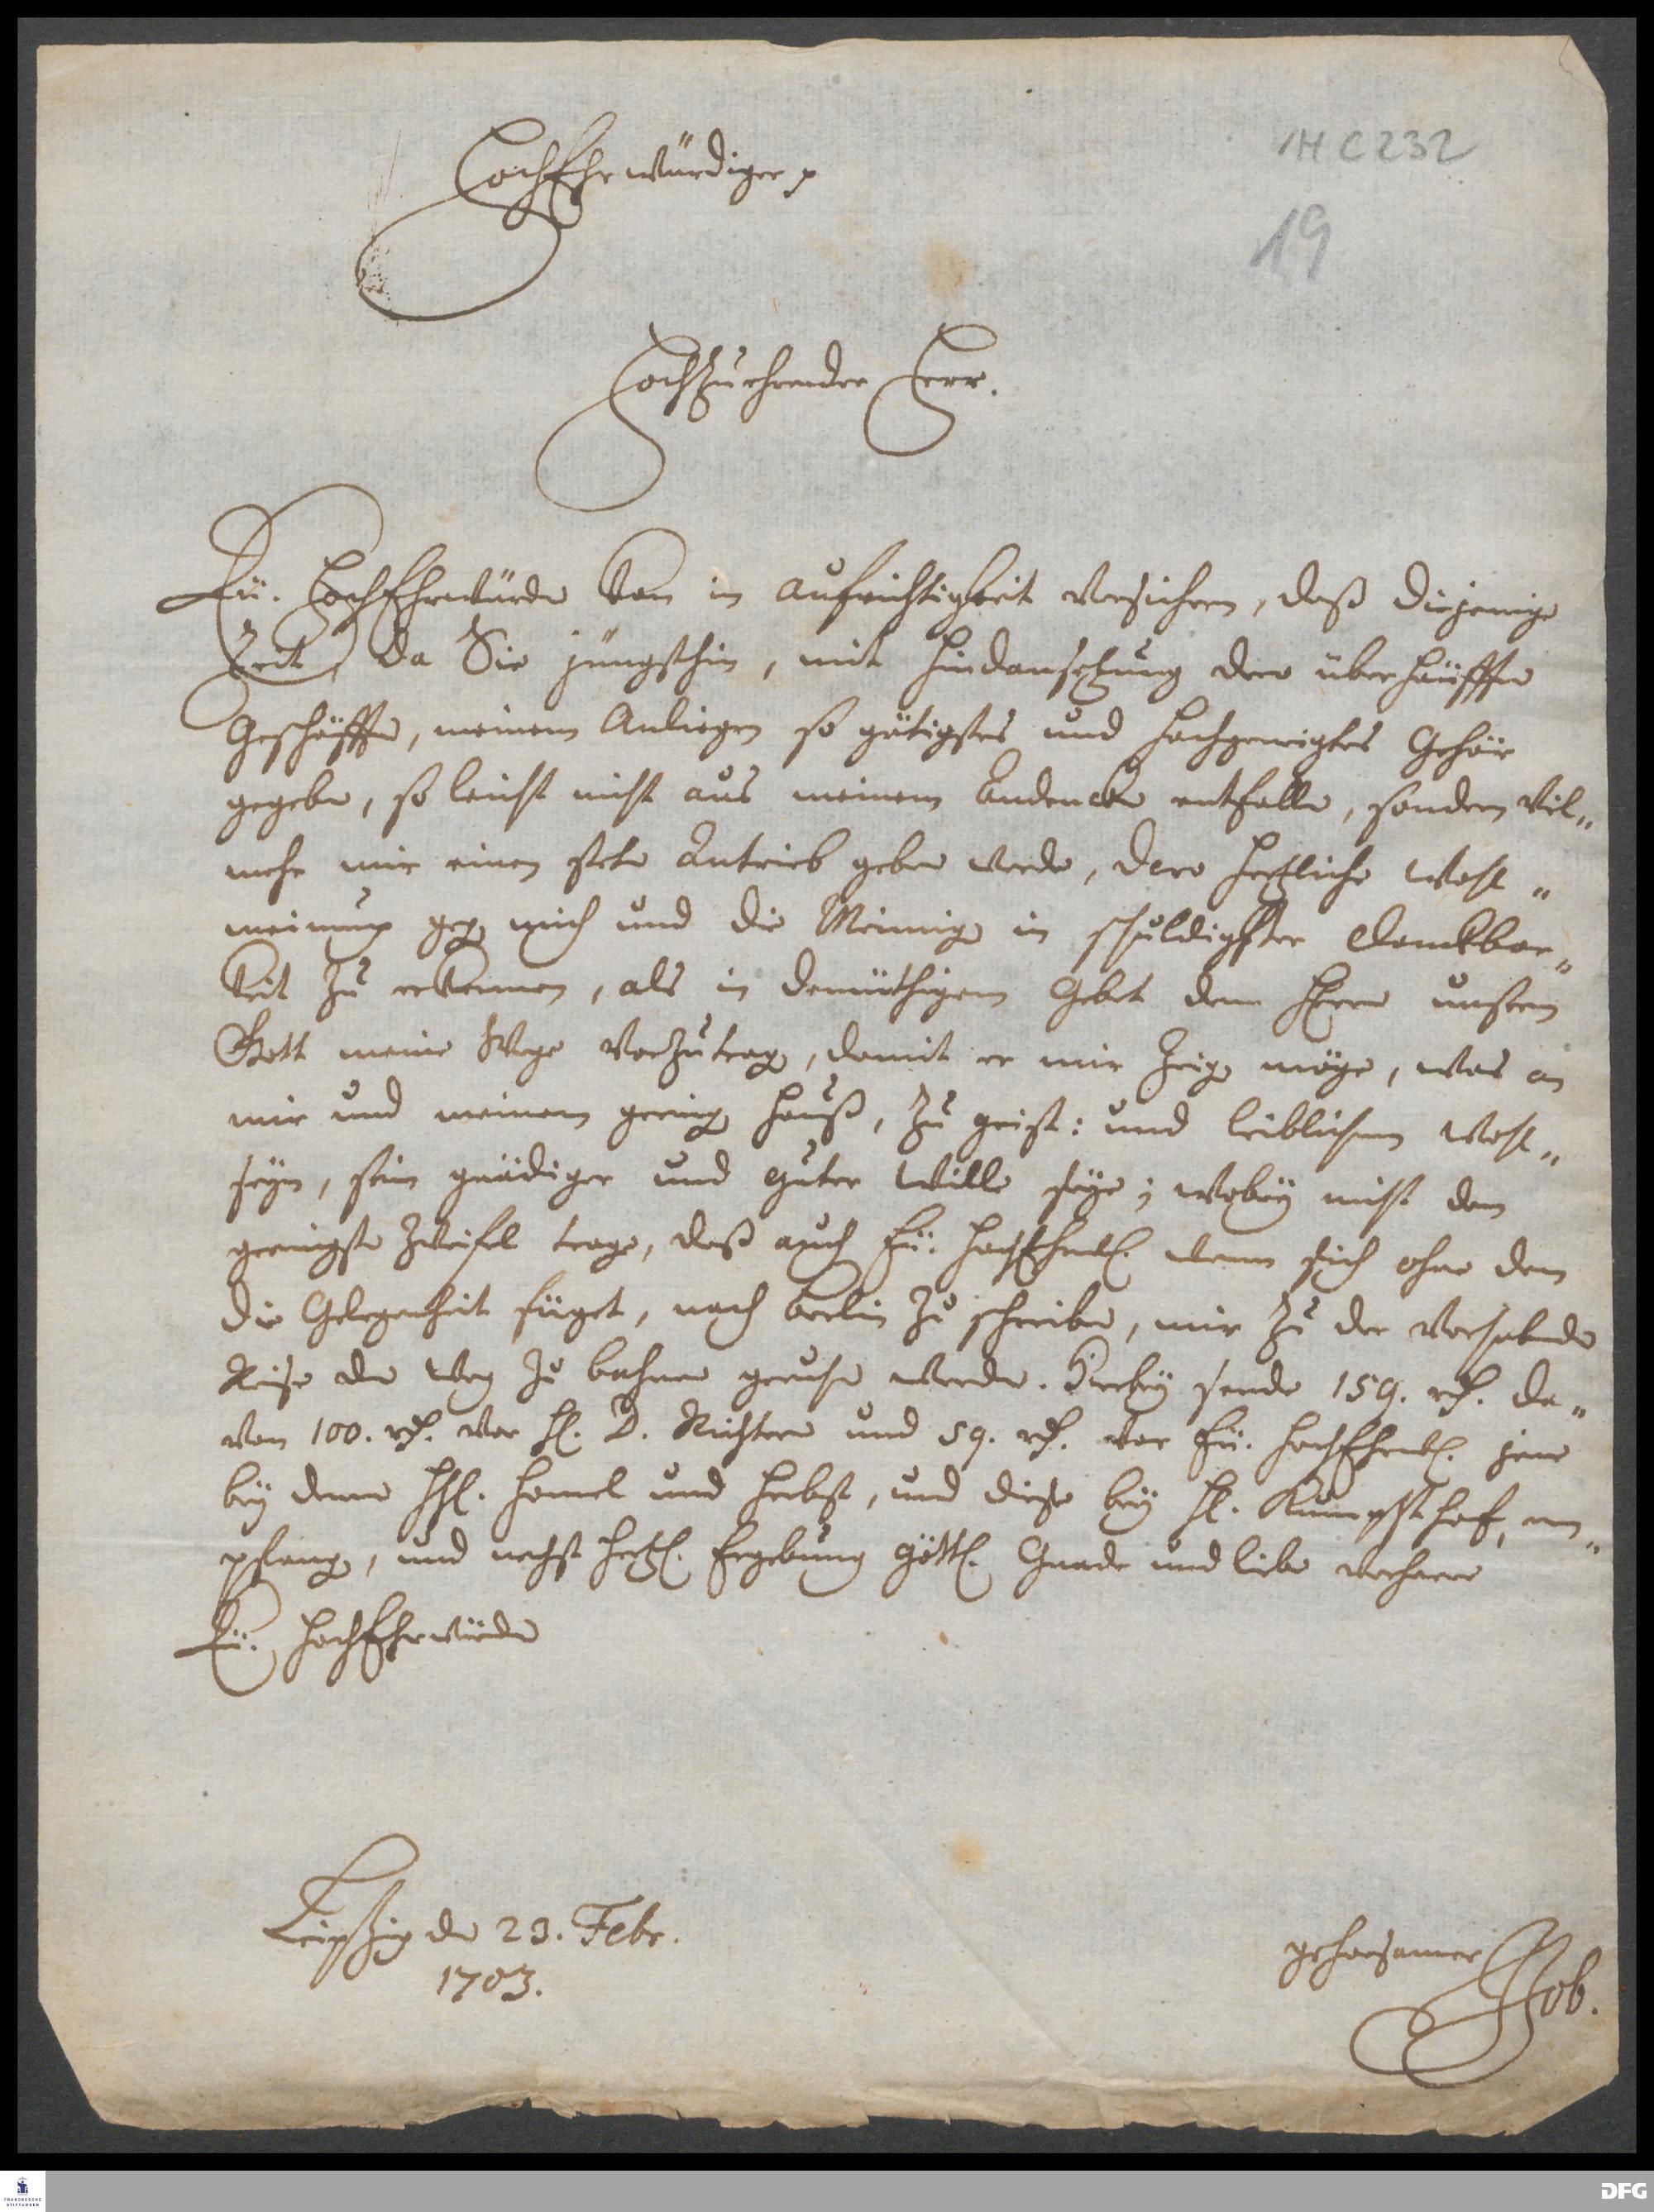 1H C 232
19
HochEhrwürdiger p
Hochzuehrender Herr.
Eü. HochEhrwürde kan in aufrichtigkeit versichern, daß diejenige
Zeit, da Sie jüngsthin, mit hindansetzung dero überhäufften
Geschäfften, meinem Anliegen so gütigstes und hochgeneigtes Gehör
gegeben, so leicht nicht aus meinem andencken entfallen, sondern viel„
mehr mir einen steten Antrieb geben werde, dero hertzliche Wohl„
meinung gegen mich und die Meinige in schuldigster danckbar„
keit zu erkennen, als in demüthigem Gebet dem HErrn unsern
Gott meine Wege vorzutragen, damit er mir zeigen möge, was an
mir und meinem geringen Hauß, zu geist: und leiblichem Wohl„
seyn, sein gnädiger und guter Wille seye; wobey nicht den
geringsten Zweifel trage, daß auch Eü. HochEhrw. wenn sich ohne dem
die Gelegenheit füget, nach Berlin zu schreiben, mir zu der vorhabenden
Reise den Weg zu bahnen geruhen werden. Hierbey sende 159. rthl. da„
von 100. rthl. vor H. D. Richtern und 59. rthl. vor Eü. HochEhrw. jene
bey denen HH. Homel und Herbst, und diese bey H. em„
pfangen, und nechst hertzl. Ergebung göttl. Gnade und liebe verharre
Eü. HochEhrwürden
Leipzig den 23. Febr.
1703.
gehorsamer
Job.
FRANCKESCHE
STIFTUNGEN
DFG